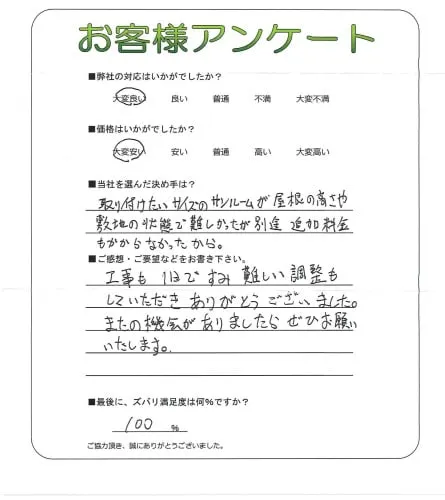 お客様アンケート
■弊社の対応はいかがでしたか？
大変良い 良い 普通 不満 大変不満
■価格はいかがでしたか？
大変安い 安い 普通 高い 大変高い
■当社を選んだ決め手は？
取り付けたいサイズのサンルームが屋根の高さや
敷地の状態で難しかったが別途 追加料金
もかからなかったから。
■ご感想・ご要望などをお書き下さい。
工事も 1日ですみ 難しい調整も
していただき ありがとうございました。
またの機会がありましたら ぜひお願い
いたします。
■最後に、ズバリ満足度は何%ですか？
100 %
ご協力頂き、誠にありがとうございました。